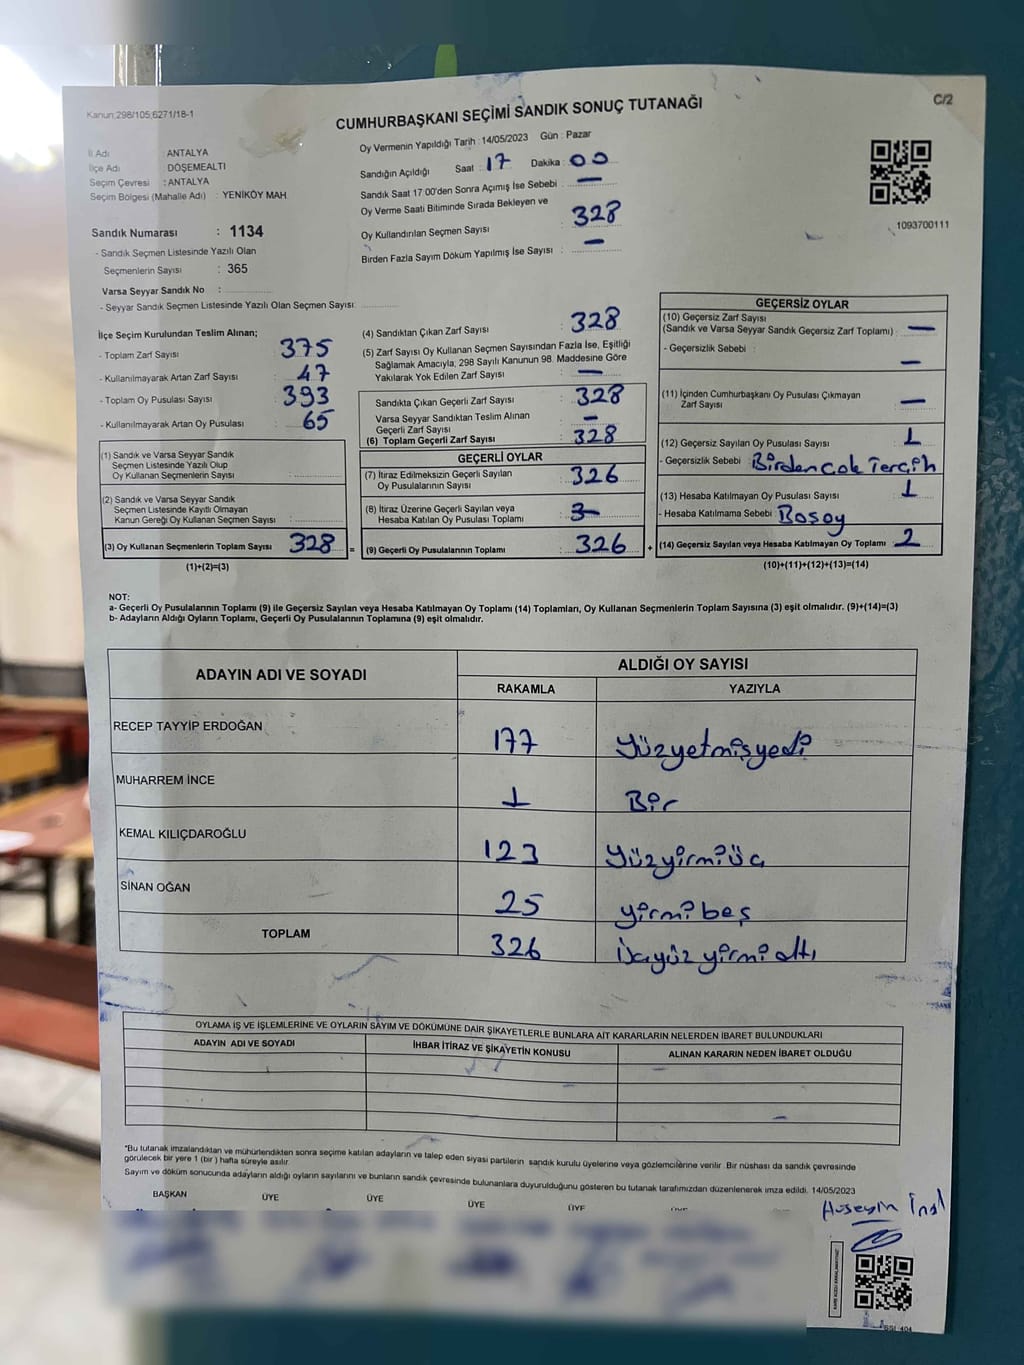 Kanun:298/105;6271/18-1
C/2
CUMHURBAŞKANI SEÇİMİ SANDIK SONUÇ TUTANAĞI
İl Adı : ANTALYA
İlçe Adı : DÖŞEMEALTI
Seçim Çevresi : ANTALYA
Seçim Bölgesi (Mahalle Adı) : YENİKÖY MAH.
Oy Vermenin Yapıldığı Tarih : 14/05/2023 Gün : Pazar
Sandığın Açıldığı Saat : 17 Dakika : 00
Sandık Saat 17:00'den Sonra Açımış İse Sebebi : —
Oy Verme Saati Bitiminde Sırada Bekleyen ve
Oy Kullandırılan Seçmen Sayısı : 328
Birden Fazla Sayım Döküm Yapılmış İse Sayısı : —
1093700111
Sandık Numarası : 1134
- Sandık Seçmen Listesinde Yazılı Olan
Seçmenlerin Sayısı : 365
Varsa Seyyar Sandık No :
- Seyyar Sandık Seçmen Listesinde Yazılı Olan Seçmen Sayısı:
İlçe Seçim Kurulundan Teslim Alınan;
- Toplam Zarf Sayısı : 375
- Kullanılmayarak Artan Zarf Sayısı : 47
- Toplam Oy Pusulası Sayısı : 393
- Kullanılmayarak Artan Oy Pusulası : 65
(1) Sandık ve Varsa Seyyar Sandık
Seçmen Listesinde Yazılı Olup
Oy Kullanan Seçmenlerin Sayısı :
(2) Sandık ve Varsa Seyyar Sandık
Seçmen Listesinde Kayıtlı Olmayan
Kanun Gereği Oy Kullanan Seçmen Sayısı :
(3) Oy Kullanan Seçmenlerin Toplam Sayısı 328 =
(1)+(2)=(3)
(4) Sandıktan Çıkan Zarf Sayısı : 328
(5) Zarf Sayısı Oy Kullanan Seçmen Sayısından Fazla İse, Eşitliği
Sağlamak Amacıyla, 298 Sayılı Kanunun 98. Maddesine Göre
Yakılarak Yok Edilen Zarf Sayısı : —
Sandıkta Çıkan Geçerli Zarf Sayısı : 328
Varsa Seyyar Sandıktan Teslim Alınan
Geçerli Zarf Sayısı : —
(6) Toplam Geçerli Zarf Sayısı : 328
GEÇERLİ OYLAR
(7) İtiraz Edilmeksizin Geçerli Sayılan
Oy Pusulalarının Sayısı : 326
(8) İtiraz Üzerine Geçerli Sayılan veya
Hesaba Katılan Oy Pusulası Toplamı :
(9) Geçerli Oy Pusulalarının Toplamı : 326 +
GEÇERSİZ OYLAR
(10) Geçersiz Zarf Sayısı
(Sandık ve Varsa Seyyar Sandık Geçersiz Zarf Toplamı) : —
- Geçersizlik Sebebi : —
(11) İçinden Cumhurbaşkanı Oy Pusulası Çıkmayan
Zarf Sayısı : —
(12) Geçersiz Sayılan Oy Pusulası Sayısı : 1
- Geçersizlik Sebebi : Birden Çok Tercih
(13) Hesaba Katılmayan Oy Pusulası Sayısı : 1
- Hesaba Katılmama Sebebi : Boşoy
(14) Geçersiz Sayılan veya Hesaba Katılmayan Oy Toplamı : 2
(10)+(11)+(12)+(13)=(14)
NOT:
a- Geçerli Oy Pusulalarının Toplamı (9) ile Geçersiz Sayılan veya Hesaba Katılmayan Oy Toplamı (14) Toplamları, Oy Kullanan Seçmenlerin Toplam Sayısına (3) eşit olmalıdır. (9)+(14)=(3)
b- Adayların Aldığı Oyların Toplamı, Geçerli Oy Pusulalarının Toplamına (9) eşit olmalıdır.
ADAYIN ADI VE SOYADI ALDIĞI OY SAYISI
RAKAMLA YAZIYLA
RECEP TAYYİP ERDOĞAN 177 Yüzyetmişyedi
MUHARREM İNCE 1 Bir
KEMAL KILIÇDAROĞLU 123 Yüzyirmiüç
SİNAN OĞAN 25 yirmibeş
TOPLAM 326 Üçyüzyirmialtı
OYLAMA İŞ VE İŞLEMLERİNE VE OYLARIN SAYIM VE DÖKÜMÜNE DAİR ŞİKAYETLERLE BUNLARA AİT KARARLARIN NELERDEN İBARET BULUNDUKLARI
ADAYIN ADI VE SOYADI İHBAR İTİRAZ VE ŞİKAYETİN KONUSU ALINAN KARARIN NEDEN İBARET OLDUĞU
*Bu tutanak imzalandıktan ve mühürlendikten sonra seçime katılan adayların ve talep eden siyasi partilerin sandık kurulu üyelerine veya gözlemcilerine verilir. Bir nüshası da sandık çevresinde
görülecek bir yere 1 (bir) hafta süreyle asılır.
Sayım ve döküm sonucunda adayların aldığı oyların sayılarını ve bunların sandık çevresinde bulunanlara duyurulduğunu gösteren bu tutanak tarafımızdan düzenlenerek imza edildi. 14/05/2023
BAŞKAN ÜYE ÜYE ÜYE ÜYE
Hüseyin